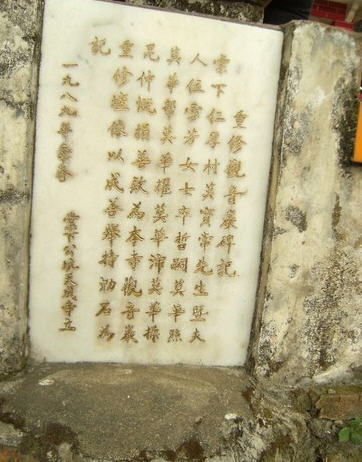 重修觀音巖碑記
棠下仁厚村莫寶常先生暨夫
人伍雪芳女士率哲嗣莫華照
莫華莫華權莫華沛莫華操
昆仲慨捐善款為本寺觀音巖
重修像以成善舉特勒石為
記
一九八九年季春
棠下公坑天成寺立